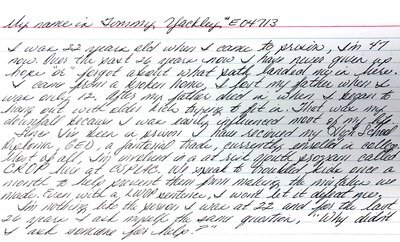 My name is Tommy Yackley "E04713
I was 22 years old when I came to prison, I'm 47
now. Over the past 26 years now I have never given up
hope "or" forgot about what path landed me in here.
I came from a broken home, I lost my father when I
was only 12. After my father died is when I began to
hang out with older kids trying to fit in. That was my
downfall because I was easily influenced most of my life.
Since I've been in prison I have received my High School
Diploma, GED, a janitorial trade, currently enrolled in college
Most of all, I'm involved in a at risk youth program called
CRCP live at CSPLAC. We speak to troubled kids once a
month to help prevent them from making the mistakes we
made. Even with a LWOP sentence, I won't let it defeat me.
I'm nothing like the person I was at 22 and for the last
26 years I ask myself the same question, "Why didn't
I ask someone for help?"